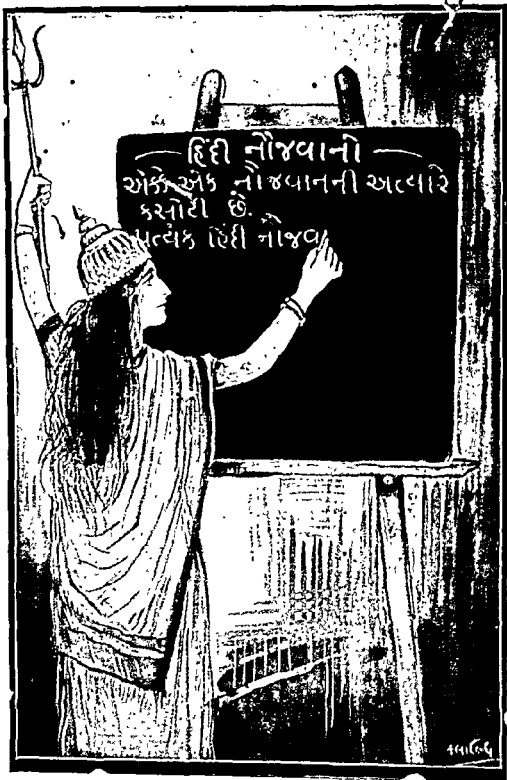 હિંદી નૌજવાનો
એકે એક નૌજવાનની અત્યારે
કસોટી છે.
પ્રત્યેક હિંદી નૌજવા